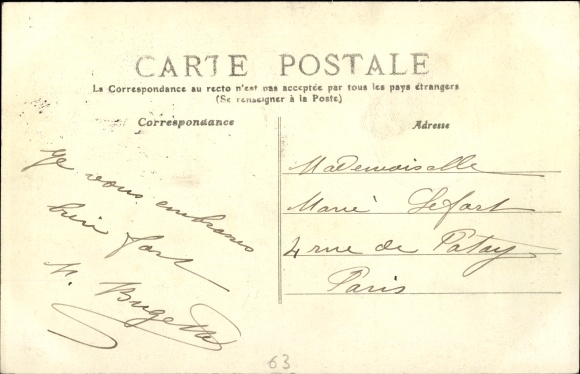 CARTE POSTALE
La Correspondance au recto n'est pas acceptée par tous les pays étrangers
(Se renseigner à la Poste)
Correspondance
Adresse
Je vous embrasse
bien fort
Mademoiselle
Marie Lefort
4 rue de Patay
Paris
63